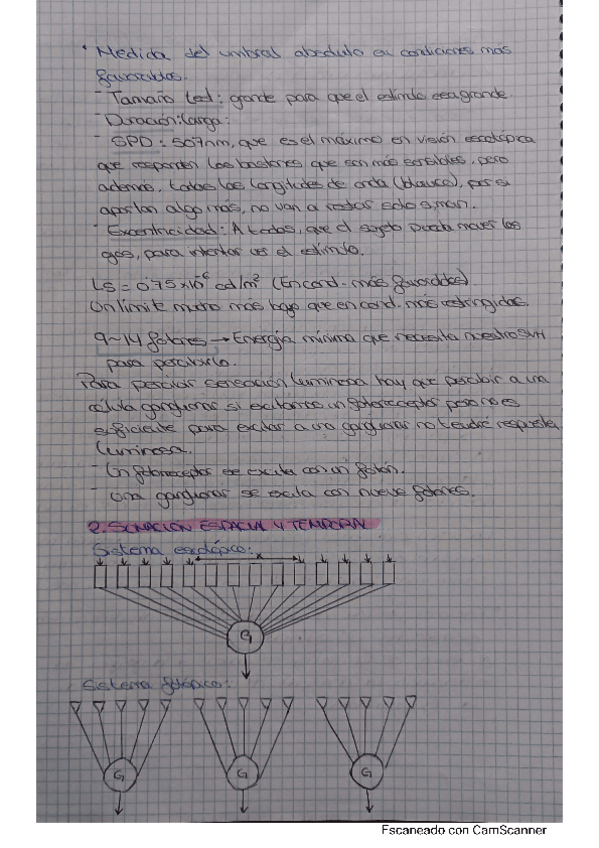 · Medida del umbral absoluto en condiciones más
favorables.
- Tamaño test: grande para que el estímulo sea grande.
- Duración: larga.
- SPD: 507nm, que es el máximo en visión escotópica
que responden los bastones, que son más sensibles, pero
además, todas las longitudes de onda (blanco), por si
aportan algo más, no van a restar sólo suman.
- Excentricidad: A todas, que el sujeto pueda mover los
ojos, para intentar ver el estímulo.
Ls = 0'75 x 10⁻⁶ cd/m² (En cond. más favorables)
Un límite mucho más bajo que en cond. más restringidas.
9~14 fotones → Energía mínima que necesita nuestro SVH
para percibirlo.
Para percibir sensación luminosa hay que percibir a una
célula ganglionar si excitamos un fotorreceptor pero no es
suficiente para excitar a una ganglionar no tendré respuesta
luminosa.
- Un fotorreceptor se excita con un fotón.
- Una ganglionar se excita con nueve fotones.
2. SUMACIÓN ESPACIAL Y TEMPORAL
Sistema escotópico:
x
G
Sistema fotópico:
G G G
Escaneado con CamScanner